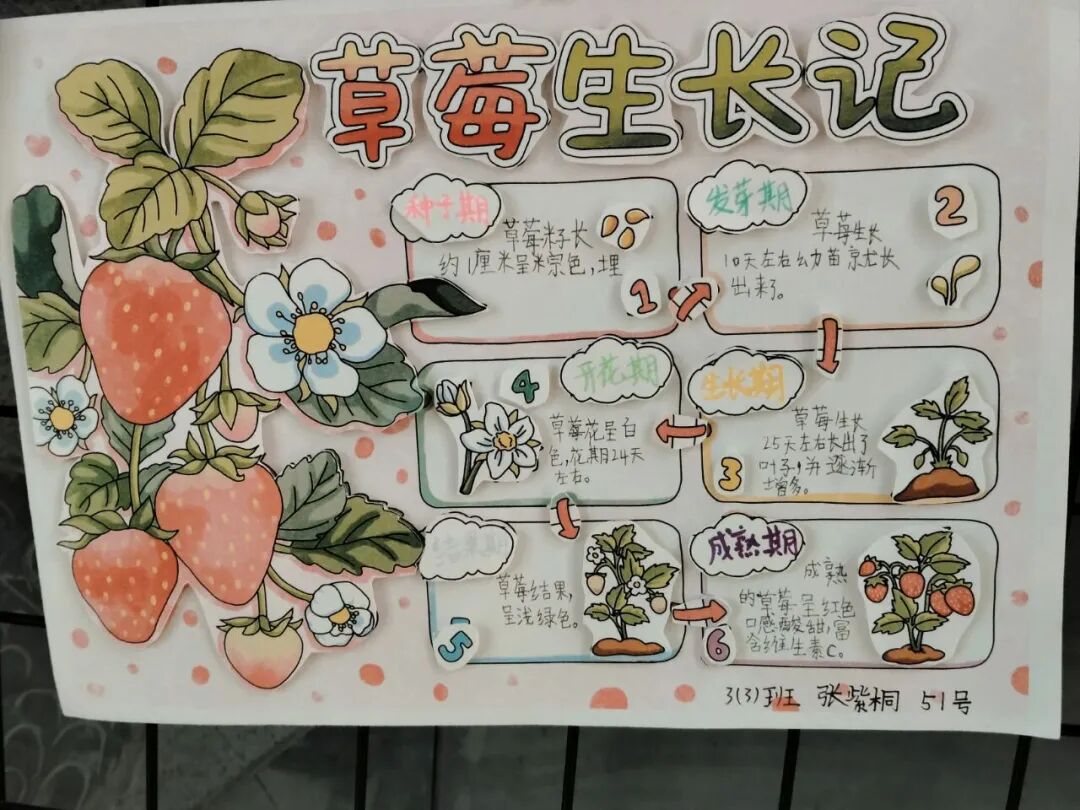 草莓生长记
种子期
草莓籽长
约1厘米呈棕色,埋
1
发芽期
2
草莓生长
10天左右幼苗就长
出来了。
生长期
草莓生长
25天左右长出了
叶子,并逐渐
增多。
3
开花期
4
草莓花呈白
色,花期24天
左右。
结果期
草莓结果,
呈浅绿色。
5
成熟期
成熟
的草莓呈红色
口感酸甜,富
含维生素C。
6
3(3)班 张紫桐 51号